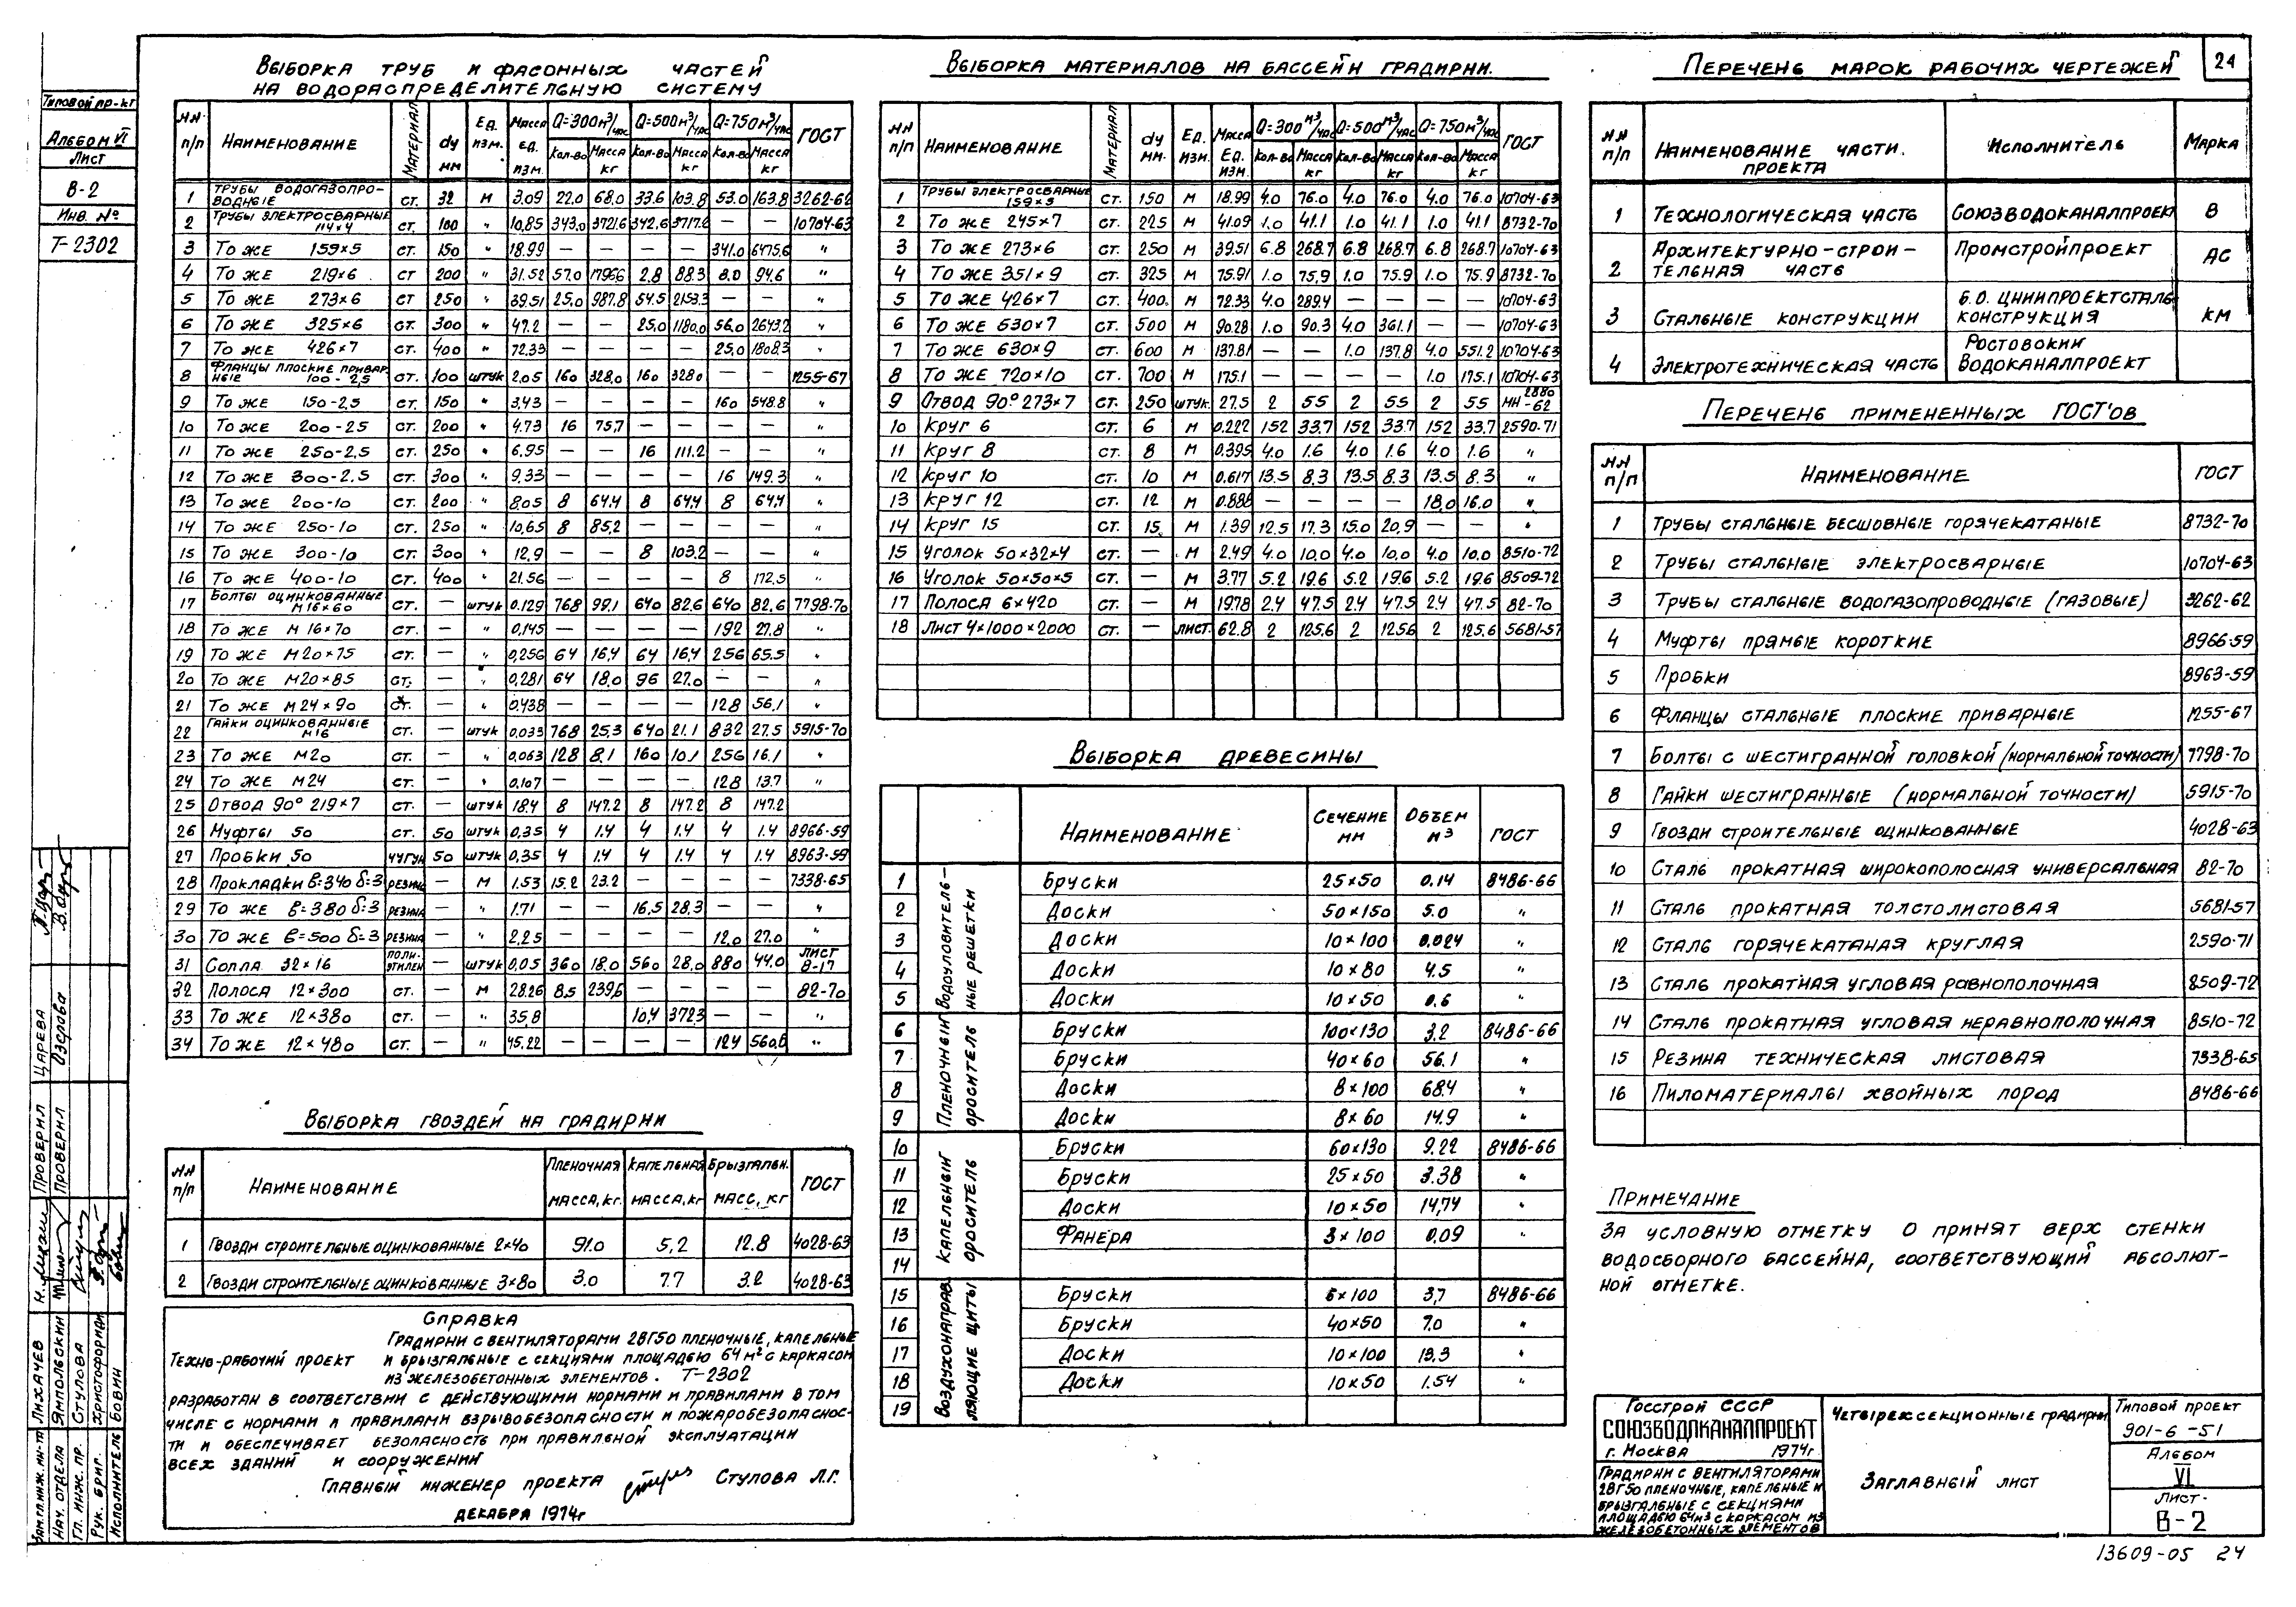 24
Типовой пр-кт
Альбом VI
Лист
В-2
Инв. №
Т-2302
Выборка труб и фасонных частей
на водораспределительную систему
нн п/п | Наименование | Материал | dу мм | Ед. изм. | Масса ед. изм. | Q=300м³/час Кол-во Масса кг | Q=500м³/час Кол-во Масса кг | Q=750м³/час Кол-во Масса кг | ГОСТ
1 Трубы водогазопроводные ст. 32 м 3.09 22.0 68.0 33.6 103.8 53.0 163.8 3262-62
2 Трубы электросварные 114×4 ст. 100 " 10,85 343.0 3721.6 342.6 3717.2 — — 10704-63
3 То же 159×5 ст. 150 " 18.99 — — — — 341.0 6475.6 "
4 То же 219×6 ст 200 " 31.52 57.0 1796.6 2.8 88.3 8.0 94.6 "
5 То же 273×6 ст 250 " 39.51 25.0 987.8 54.5 2153.3 — — "
6 То же 325×6 ст. 300 " 47.2 — — 25.0 1180.0 56.0 2643.2 "
7 То же 426×7 ст. 400 " 72.33 — — — — 25.0 1808.3 "
8 Фланцы плоские приварные 100-2,5 ст. 100 штук 2.05 160 328.0 160 328.0 — — 1255-67
9 То же 150-2,5 ст. 150 " 3,43 — — — — 160 548.8 "
10 То же 200-25 ст. 200 " 4.73 16 75,7 — — — — "
11 То же 250-2,5 ст. 250 " 6.95 — — 16 111.2 — — "
12 То же 300-2.5 ст. 300 " 9.33 — — — — 16 149.3 "
13 То же 200-10 ст. 200 " 8,05 8 64,4 8 64,4 8 64,4 "
14 То же 250-10 ст. 250 " 10,65 8 85,2 — — — — "
15 То же 300-10 ст. 300 " 12,9 — — 8 103.2 — — "
16 То же 400-10 ст. 400 " 21.56 — — — — 8 172,5 "
17 Болты оцинкованные М16×60 ст. — штук 0.129 768 99,1 640 82.6 640 82.6 7798-70
18 То же М 16×70 ст. — " 0,145 — — — — 192 27.8 "
19 То же М20×75 ст. — " 0,256 64 16,4 64 16,4 256 65.5 "
20 То же М20×85 ст. — " 0,281 64 18.0 96 27.0 — — "
21 То же М24×90 ст. — " 0,438 — — — — 128 56.1 "
22 Гайки оцинкованные М16 ст. — штук 0.033 768 25,3 640 21.1 832 27.5 5915-70
23 То же М20 ст. — " 0.063 128 8.1 160 10,1 256 16.1 "
24 То же М24 ст. — " 0,107 — — — — 128 13.7 "
25 Отвод 90° 219×7 ст. — штук 18.4 8 147.2 8 147.2 8 147.2
26 Муфты 50 ст. 50 штук 0,35 4 1.4 4 1.4 4 1.4 8966-59
27 Пробки 50 чугун 50 штук 0,35 4 1.4 4 1.4 4 1.4 8963-59
28 Прокладки в=340 δ=3 резина — м 1.53 15.2 23.2 — — — — 7338-65
29 То же в=380 δ=3 резина — " 1.71 — — 16,5 28,3 — — "
30 То же в=500 δ=3 резина — " 2,25 — — — — 12,0 27.0 "
31 Сопла 32×16 полиэтилен — штук 0,05 360 18.0 560 28,0 880 44.0 лист В-17
32 Полоса 12×300 ст. — м 28.26 8.5 239,6 — — — — 82-70
33 То же 12×380 ст. — " 35,8 10,4 372,3 — — "
34 То же 12×480 ст. — " 45.22 — — — — 12,4 560,6 "
Выборка гвоздей на градирни
нн п/п | Наименование | Пленочная масса, кг. | Капельная масса, кг | Брызгальн. масс, кг | ГОСТ
1 Гвозди строительные оцинкованные 2×40 91.0 5,2 12.8 4028-63
2 Гвозди строительные оцинкованные 3×80 3.0 7.7 3.2 4028-63
Справка
Градирни с вентиляторами 2ВГ50 пленочные, капельные
Техно-рабочий проект и брызгальные с секциями площадью 64м² с каркасом
из железобетонных элементов. Т-2302
разработан в соответствии с действующими нормами и правилами в том
числе с нормами и правилами взрывобезопасности и пожаробезопаснос-
ти и обеспечивает безопасность при правильной эксплуатации
всех зданий и сооружений
Главный инженер проекта Стулова Л.Г.
декабря 1974г
Выборка материалов на бассейн градирни.
нн п/п | Наименование | Материал | dу мм. | Ед. изм. | Масса ед. изм. | Q=300 м³/час Кол-во Масса кг | Q=500 м³/час Кол-во Масса кг | Q=750м³/час Кол-во Масса кг | ГОСТ
1 Трубы электросварные 159×5 ст. 150 м 18.99 4.0 76.0 4.0 76.0 4.0 76.0 10704-63
2 То же 245×7 ст. 225 м 41.09 1.0 41.1 1.0 41.1 1.0 41.1 8732-70
3 То же 273×6 ст. 250 м 39.51 6.8 268.7 6.8 268.7 6.8 268.7 10704-63
4 То же 351×9 ст. 325 м 75.91 1.0 75,9 1.0 75.9 1.0 75.9 8732-70
5 То же 426×7 ст. 400. м 72.33 4.0 289.4 — — — — 10704-63
6 То же 630×7 ст. 500 м 90.28 1.0 90.3 4.0 361.1 — — 10704-63
7 То же 630×9 ст. 600 м 137.81 — — 1.0 137.8 4.0 551.2 10704-63
8 То же 720×10 ст. 700 м 175.1 — — 1.0 175.1 10704-63
9 Отвод 90° 273×7 ст. 250 штук. 27,5 2 55 2 55 2 55 МН 2880-62
10 Круг 6 ст. 6 м 0.222 152 33.7 152 33.7 152 33.7 2590-71
11 Круг 8 ст. 8 м 0.395 4.0 1.6 4.0 1.6 4.0 1.6 "
12 Круг 10 ст. 10 м 0.617 13.5 8.3 13.5 8.3 13.5 8.3 "
13 Круг 12 ст. 12 м 0.888 — — — — 18,0 16.0 "
14 Круг 15 ст. 15 м 1.39 12.5 17.3 15.0 20,9 — — "
15 Уголок 50×32×4 ст. — м 2.49 4.0 10,0 4.0 10,0 4.0 10.0 8510-72
16 Уголок 50×50×5 ст. — м 3.77 5.2 19.6 5.2 19.6 5.2 19.6 8509-72
17 Полоса 6×420 ст. — м 19.78 2.4 47.5 2.4 47.5 2.4 47.5 82-70
18 Лист 4×1000×2000 ст. — лист. 62.8 2 125.6 2 125.6 2 125.6 5681-57
Выборка древесины
Наименование | Сечение мм | Объем м³ | ГОСТ
Водоуловительные решетки
1 Бруски 25×50 0.14 8486-66
2 Доски 50×150 5.0 "
3 Доски 10×100 0.024 "
4 Доски 10×80 4.5 "
5 Доски 10×50 0.6 "
Пленочный ороситель
6 Бруски 100×130 3.2 8486-66
7 Бруски 40×60 56.1 "
8 Доски 8×100 68.4 "
9 Доски 8×60 14.9 "
Капельный ороситель
10 Бруски 60×130 9.22 8486-66
11 Бруски 25×50 3.38 "
12 Доски 10×50 14,74 "
13 Фанера 3×100 0,09 "
14
Воздухонаправляющие щиты
15 Бруски 6×100 3,7 8486-66
16 Бруски 40×50 7.0 "
17 Доски 10×100 13.3 "
18 Доски 10×50 1.54 "
19
Перечень марок рабочих чертежей
нн п/п | Наименование части. проекта | Исполнитель | Марка
1 Технологическая часть Союзводоканалпроект В
2 Архитектурно-строительная часть Промстройпроект АС
3 Стальные конструкции Б.О. ЦНИИпроектстальконструкция КМ
4 Электротехническая часть Ростовский Водоканалпроект
Перечень примененных ГОСТ'ов
нн п/п | Наименование | ГОСТ
1 Трубы стальные бесшовные горячекатаные 8732-70
2 Трубы стальные электросварные 10704-63
3 Трубы стальные водогазопроводные (газовые) 3262-62
4 Муфты прямые короткие 8966-59
5 Пробки 8963-59
6 Фланцы стальные плоские приварные 1255-67
7 Болты с шестигранной головкой (нормальной точности) 7798-70
8 Гайки шестигранные (нормальной точности) 5915-70
9 Гвозди строительные оцинкованные 4028-63
10 Сталь прокатная широкополосная универсальная 82-70
11 Сталь прокатная толстолистовая 5681-57
12 Сталь горячекатаная круглая 2590-71
13 Сталь прокатная угловая равнополочная 8509-72
14 Сталь прокатная угловая неравнополочная 8510-72
15 Резина техническая листовая 7338-65
16 Пиломатериалы хвойных пород 8486-66
Примечание
За условную отметку 0 принят верх стенки
водосборного бассейна, соответствующий абсолют-
ной отметке.
Госстрой СССР
СОЮЗВОДОКАНАЛПРОЕКТ
г. Москва 1974г.
Градирни с вентиляторами
2ВГ50 пленочные, капельные и
брызгальные с секциями
площадью 64м³ с каркасом из
железобетонных элементов
Четырехсекционные градирни
Заглавный лист
Типовой проект
901-6-51
Альбом
VI
Лист-
В-2
13609-05 24
Зам. гл. инж. ин-та Лихачев
Нач. отдела Ямпольский
Гл. инж. пр. Стулова
Рук. бриг. Христофориди
Исполнитель Бовин
Проверил Царева
Проверил Озерова